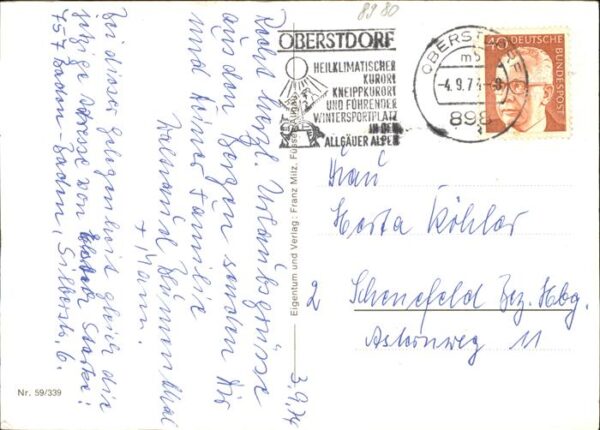 8980
OBERSTDORF
HEILKLIMATISCHER
KURORT
KNEIPPKURORT
UND FÜHRENDER
WINTERSPORTPLATZ
IN DEN
ALLGÄUER ALPEN
OBERSTDORF
mb
-4.9.74-9
898
40 DEUTSCHE
BUNDESPOST
Recht herzl. Urlaubsgrüsse
aus den Bergen senden Dir
und Deiner Familie
Blumenthal
+ Mann.
3.9.74
Bei dieser Gelegenheit gleich die
jetzige Adresse von
757 Baden-Baden, Silberstr. 6.
Eigentum und Verlag: Franz Milz, Füssen
Nr. 59/339
Frau
Herta Köhler
2 Schenefeld Bez. Hbg.
Asternweg 11